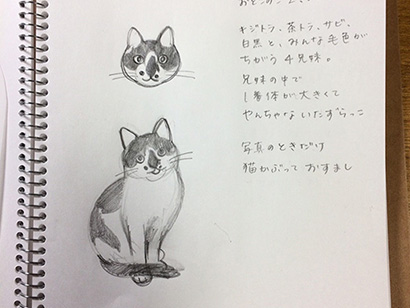 キジトラ、茶トラ、サビ、
白黒と、みんな毛色が
ちがう4兄妹。
兄妹の中で
1番体が大きくて
やんちゃないたずらっこ
写真のときだけ
猫かぶって おすまし